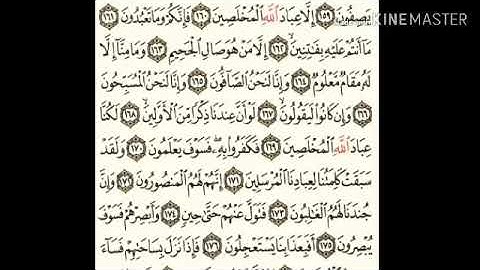 يَصِفُونَ ١٥٩ إِلَّا عِبَادَ اللَّهِ الْمُخْلَصِينَ ١٦٠ فَإِنَّكُمْ وَمَا تَعْبُدُونَ ١٦١
مَا أَنتُمْ عَلَيْهِ بِفَاتِنِينَ ١٦٢ إِلَّا مَنْ هُوَ صَالِ الْجَحِيمِ ١٦٣ وَمَا مِنَّا إِلَّا
لَهُ مَقَامٌ مَّعْلُومٌ ١٦٤ وَإِنَّا لَنَحْنُ الصَّافُّونَ ١٦٥ وَإِنَّا لَنَحْنُ الْمُسَبِّحُونَ
١٦٦ وَإِن كَانُوا لَيَقُولُونَ ١٦٧ لَوْ أَنَّ عِندَنَا ذِكْرًا مِّنَ الْأَوَّلِينَ ١٦٨ لَكُنَّا
عِبَادَ اللَّهِ الْمُخْلَصِينَ ١٦٩ فَكَفَرُوا بِهِ فَسَوْفَ يَعْلَمُونَ ١٧٠ وَلَقَدْ
سَبَقَتْ كَلِمَتُنَا لِعِبَادِنَا الْمُرْسَلِينَ ١٧١ إِنَّهُمْ لَهُمُ الْمَنصُورُونَ ١٧٢ وَإِنَّ
جُندَنَا لَهُمُ الْغَالِبُونَ ١٧٣ فَتَوَلَّ عَنْهُمْ حَتَّىٰ حِينٍ ١٧٤ وَأَبْصِرْهُمْ فَسَوْفَ
يُبْصِرُونَ ١٧٥ أَفَبِعَذَابِنَا يَسْتَعْجِلُونَ ١٧٦ فَإِذَا نَزَلَ بِسَاحَتِهِمْ فَسَاءَ
KINEMASTER